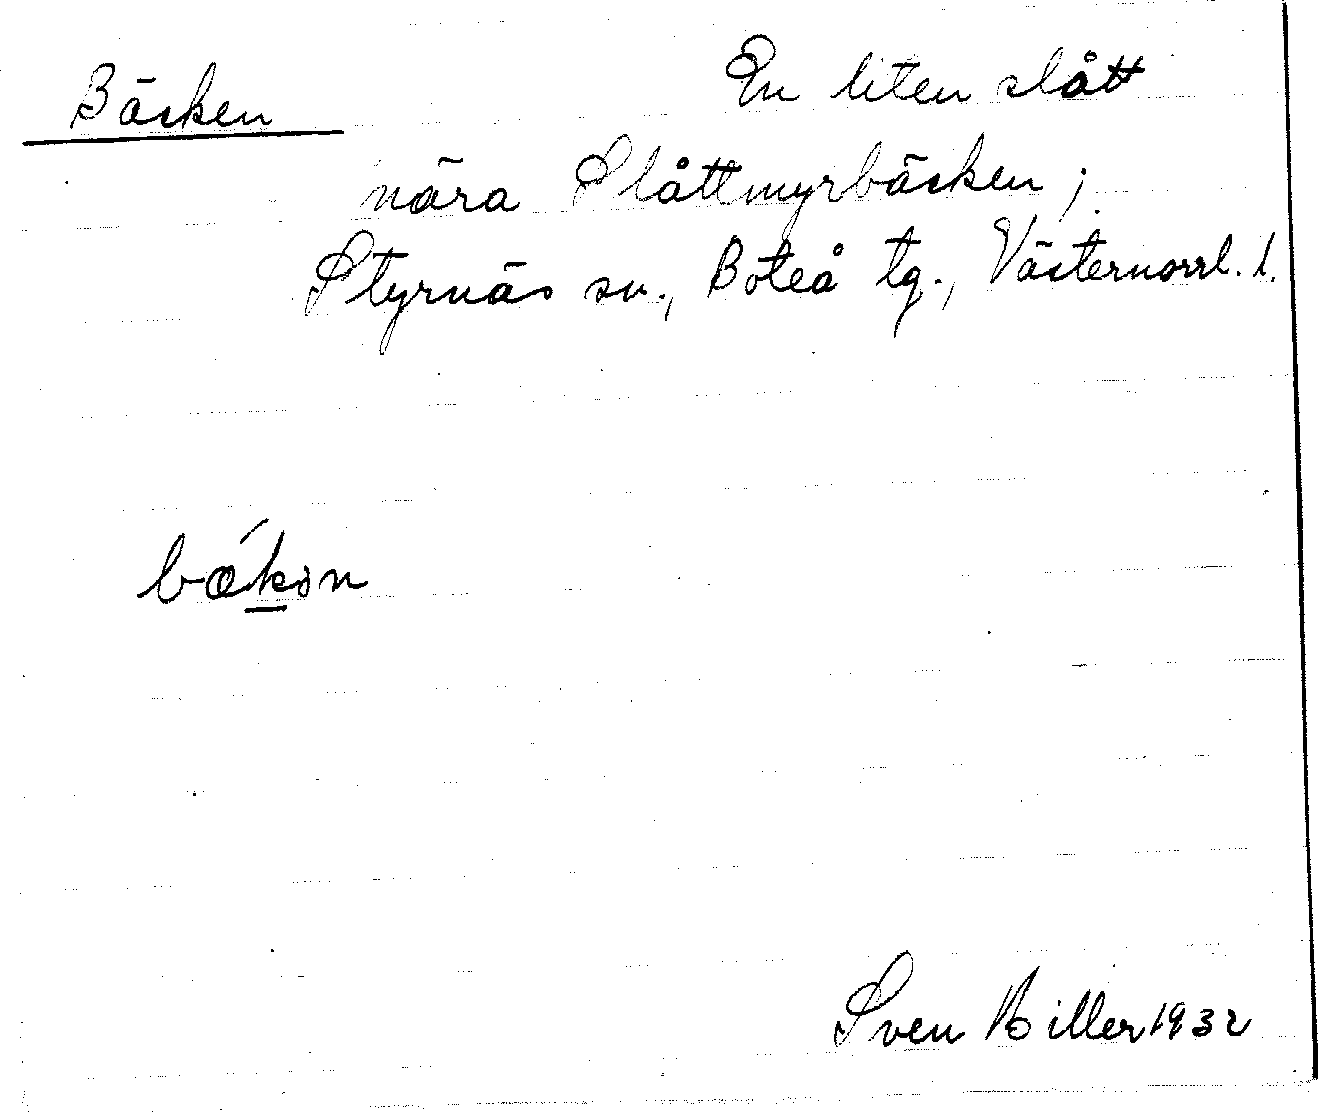 Bäcken
En liten slått
nära Slåttmyrbäcken;
Styrnäs sn., Boteå tg., Västernorrl. l.
Sven Hiller 1932